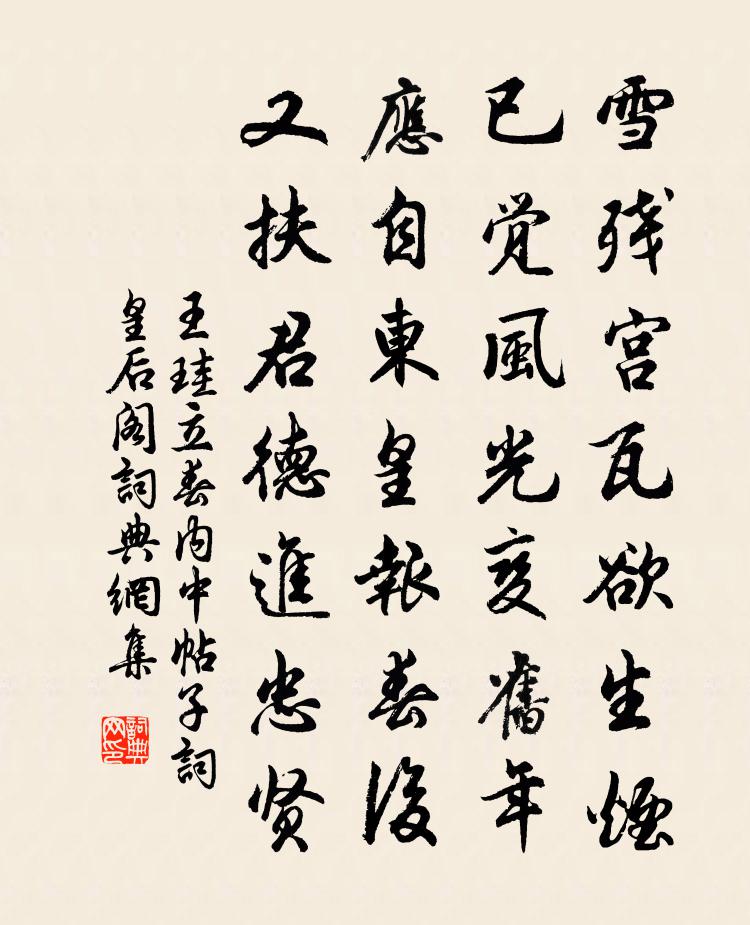 雪残宫瓦欲生煙
已觉風光变舊年
應自東皇報春後
又扶君德進忠贤
王珪立春内中帖子詞
皇后阁詞典網集
詞典网印